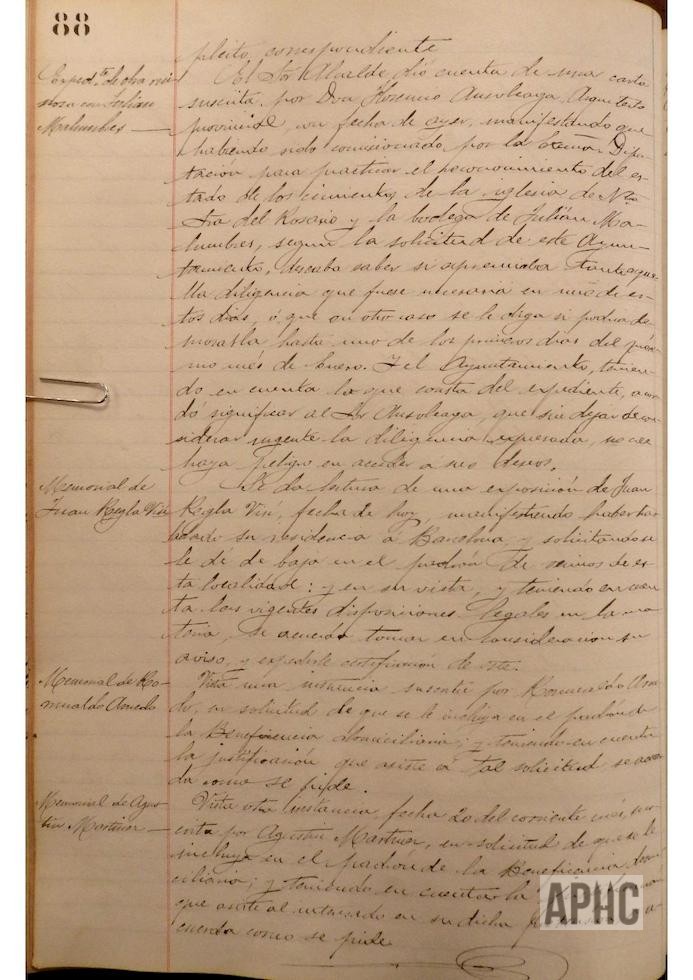 88
pleito correspondiente
Exped.te de obra rui-
nosa con Julian
Malumbres
El Sor Alcalde dió cuenta de una carta
suscrita por Don Florencio Ansoleaga, Arquitecto
provincial con fecha de ayer, manifestando que
habiendo sido comisionado por la Excma Dipu-
tación para practicar el reconocimiento del es-
tado de los cimientos de la iglesia de Ntra
Sra del Rosario y la bodega de Julián Ma-
lumbres, segun la solicitud de este Ayun-
tamiento, deseaba saber si apremiaba tanto aque-
lla diligencia que fuese necesaria en uno de es-
tos dias, ó que en otro caso se le diga si podria de-
morarla hasta uno de los primeros dias del próxi-
mo mes de Enero. Y el Ayuntamiento, tenien-
do en cuenta lo que consta del expediente, acor-
dó significar al Sor Ansoleaga, que sin dejar de con-
siderar urgente la diligencia expresada, no cree
haya peligro en acceder a sus deseos.
Memorial de
Juan Regla Visi
Se da lectura de una exposición de Juan
Regla Visi, fecha de hoy, manifestando haber tras-
ladado su residencia á Barcelona y solicitando se
le dé de baja en el padrón de vecinos de es-
ta localidad: y en su vista, y teniendo en cuen-
ta las vigentes disposiciones legales en la ma-
teria, se acuerda tomar en consideracion su
aviso, y expedirle certificación de este.
Memorial de Ro-
mualdo Asnedo
Vista una instancia suscrita por Romualdo Asne-
do, en solicitud de que se le incluya en el padrón de
la Beneficencia domiciliaria; y teniendo en cuenta
la justificación que asiste á tal solicitud se acuer-
da como se pide.
Memorial de Agus-
tin Martinez
Vista otra instancia fecha 20 del corriente mes, sus-
crita por Agustin Martinez, en solicitud de que se le
incluya en el padrón de la Beneficencia domi-
ciliaria; y teniendo en cuenta la
que asiste al interesado en su dicha a-
cuerda como se pide
APHC